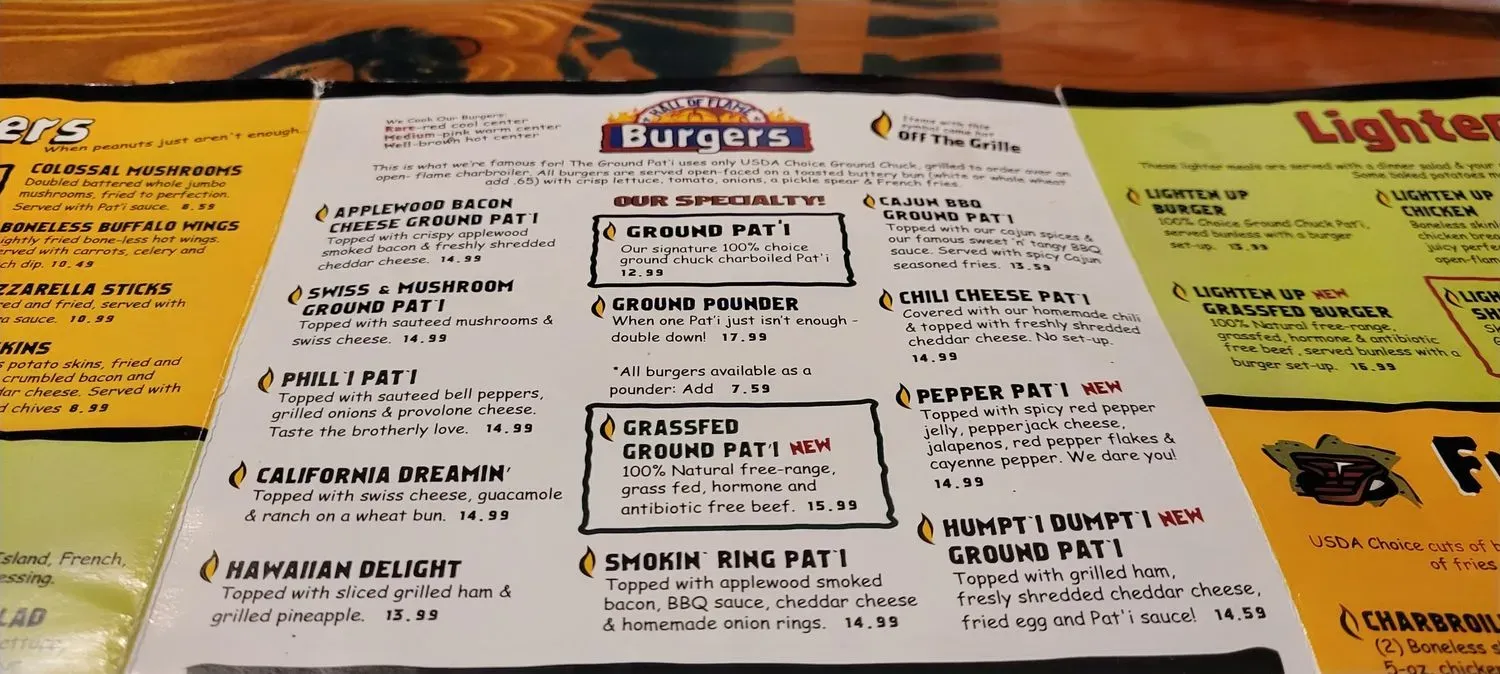 ers
When peanuts just aren't enough...
COLOSSAL MUSHROOMS
Doubled battered whole jumbo
mushrooms, fried to perfection.
Served with Pat'i sauce. 8.59
BONELESS BUFFALO WINGS
ightly fried bone-less hot wings.
rved with carrots, celery and
ch dip. 10.49
ZZARELLA STICKS
red and fried, served with
a sauce. 10.99
KINS
s potato skins, fried and
crumbled bacon and
ar cheese. Served with
d chives 8.99
sland, French,
essing.
LAD
ettuce,
We Cook Our Burgers:
Rare-red cool center
Medium-pink warm center
Well-brown hot center
HALL OF FLAME
Burgers
Flame with this
symbol come hot
OFF The Grille
This is what we're famous for! The Ground Pat'i uses only USDA Choice Ground Chuck, grilled to order over an
open- flame charbroiler. All burgers are served open-faced on a toasted buttery bun (white or whole wheat
add .65) with crisp lettuce, tomato, onions, a pickle spear & French fries.
APPLEWOOD BACON
CHEESE GROUND PAT'I
Topped with crispy applewood
smoked bacon & freshly shredded
cheddar cheese. 14.99
SWISS & MUSHROOM
GROUND PAT'I
Topped with sauteed mushrooms &
swiss cheese. 14.99
PHILL'I PAT'I
Topped with sauteed bell peppers,
grilled onions & provolone cheese.
Taste the brotherly love. 14.99
CALIFORNIA DREAMIN'
Topped with swiss cheese, guacamole
& ranch on a wheat bun. 14.99
HAWAIIAN DELIGHT
Topped with sliced grilled ham &
grilled pineapple. 13.99
OUR SPECIALTY!
GROUND PAT'I
Our signature 100% choice
ground chuck charboiled Pat'i
12.99
GROUND POUNDER
When one Pat'i just isn't enough -
double down! 17.99
*All burgers available as a
pounder: Add 7.59
GRASSFED
GROUND PAT'I NEW
100% Natural free-range,
grass fed, hormone and
antibiotic free beef. 15.99
SMOKIN' RING PAT'I
Topped with applewood smoked
bacon, BBQ sauce, cheddar cheese
& homemade onion rings. 14.99
CAJUN BBQ
GROUND PAT'I
Topped with our cajun spices &
our famous sweet 'n' tangy BBQ
sauce. Served with spicy Cajun
seasoned fries. 13.59
CHILI CHEESE PAT'I
Covered with our homemade chili
& topped with freshly shredded
cheddar cheese. No set-up.
14.99
PEPPER PAT'I NEW
Topped with spicy red pepper
jelly, pepperjack cheese,
jalapenos, red pepper flakes &
cayenne pepper. We dare you!
14.99
HUMPT'I DUMPT'I NEW
GROUND PAT'I
Topped with grilled ham,
fresly shredded cheddar cheese,
fried egg and Pat'i sauce! 14.59
Lighter
These lighter meals are served with a dinner salad & your
Some baked potatoes m
LIGHTEN UP
BURGER
100% Choice Ground Chuck Pat'i,
served bunless with a burger
set-up. 13.99
LIGHTEN UP
CHICKEN
Boneless skinl
chicken brea
juicy perfe
open-flam
LIGHTEN UP NEW
GRASSFED BURGER
100% Natural free-range,
grassfed, hormone & antibiotic
free beef, served bunless with a
burger set-up. 16.99
LIGH
SH
USDA Choice cuts of b
of fries
CHARBROIL
(2) Boneless s
5-oz. chicke